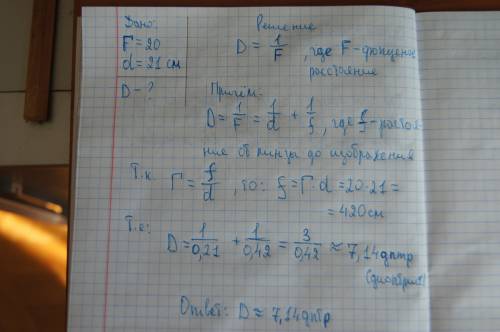 Дано:
Г = 20
d = 21 см
D - ?
Решение
D = 1/F, где F - фокусное
расстояние
Причём:
D = 1/F = 1/d + 1/f, где f - расстоя-
ние от линзы до изображения
Т.к. Г = f/d, то: f = Г·d = 20·21 =
= 420 см
Т.е.:
D = 1/0,21 + 1/0,42 = 3/0,42 ≈ 7,14 дптр
(диоптрий)
Ответ: D ≈ 7,14 дптр.